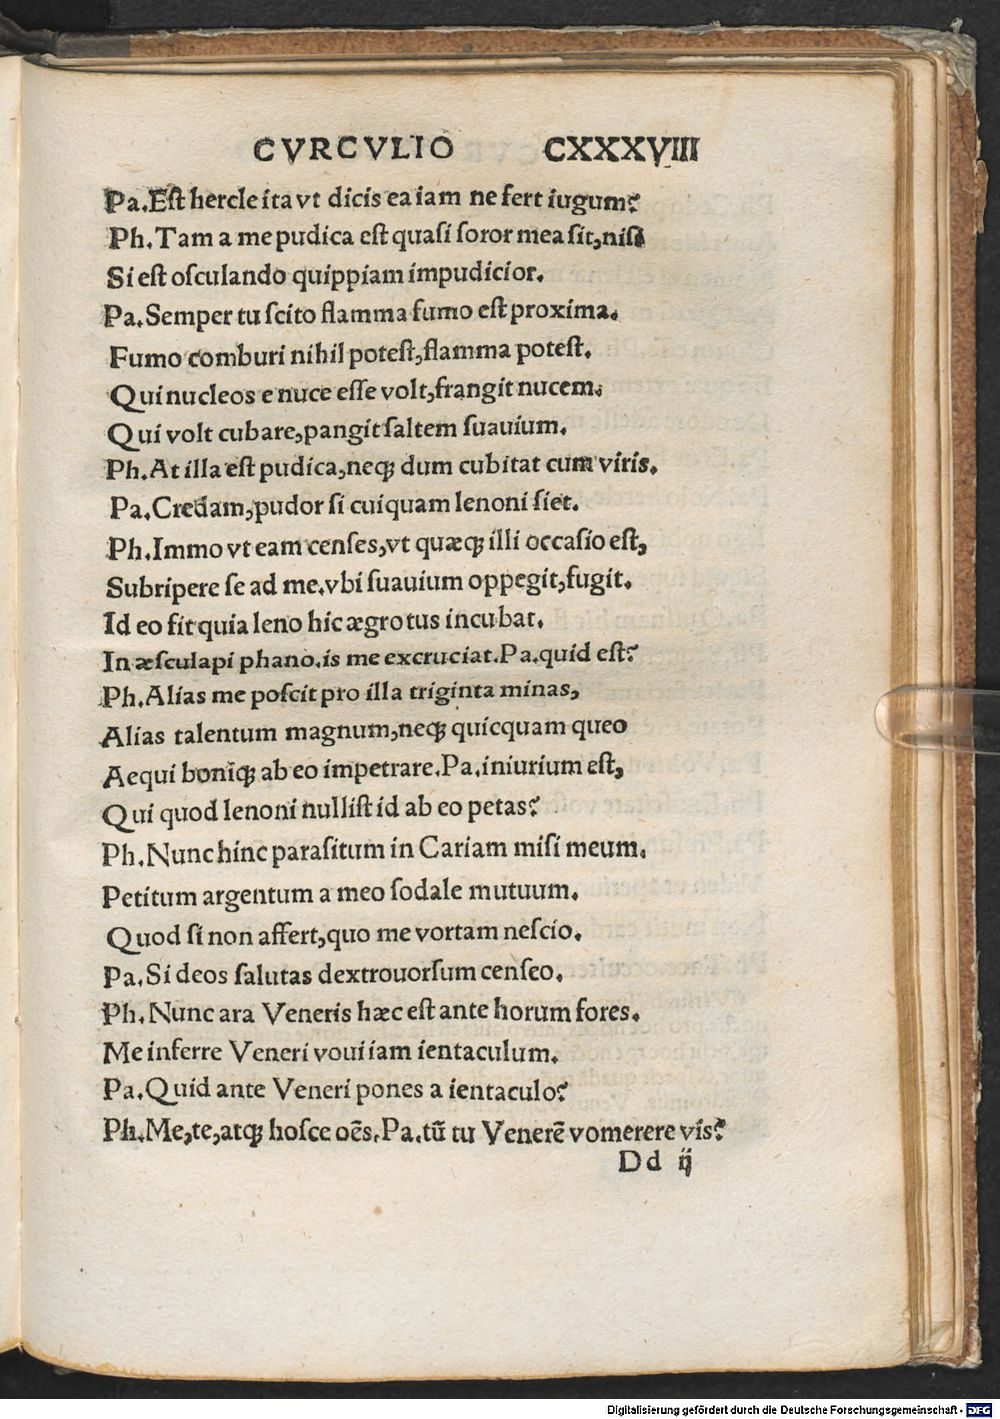 CVRCVLIO CXXXVIII
Pa.Eſt hercle ita vt dicis ea iam ne fert iugum?
Ph.Tam a me pudica eſt quaſi ſoror mea ſit,niſi
Si eſt oſculando quippiam impudicior.
Pa.Semper tu ſcito flamma fumo eſt proxima.
Fumo comburi nihil poteſt,flamma poteſt.
Qui nucleos e nuce eſſe volt,frangit nucem.
Qui volt cubare,pangit ſaltem ſuauium.
Ph.At illa eſt pudica,neqꝫ dum cubitat cum viris.
Pa.Credam,pudor ſi cuiquam lenoni ſiet.
Ph.Immo vt eam cenſes,vt quæqꝫ illi occaſio eſt,
Subripere ſe ad me.vbi ſuauium oppegit,fugit.
Id eo fit quia leno hic ægrotus incubat.
In æſculapi phano.is me excruciat.Pa.quid eſt?
Ph.Alias me poſcit pro illa triginta minas,
Alias talentum magnum,neqꝫ quicquam queo
Aequi boniqꝫ ab eo impetrare.Pa.iniurium eſt,
Qui quod lenoni nulliſt id ab eo petas?
Ph.Nunc hinc paraſitum in Cariam miſi meum.
Petitum argentum a meo ſodale mutuum.
Quod ſi non affert,quo me vortam neſcio.
Pa.Si deos ſalutas dextrouorſum cenſeo.
Ph.Nunc ara Veneris hæc eſt ante horum fores.
Me inferre Veneri voui iam ientaculum.
Pa.Quid ante Veneri pones a ientaculo?
Ph.Me,te,atqꝫ hoſce oēs.Pa.tū tu Venerē vomerere vis?
Dd ij
Digitalisierung gefördert durch die Deutsche Forschungsgemeinschaft - DFG